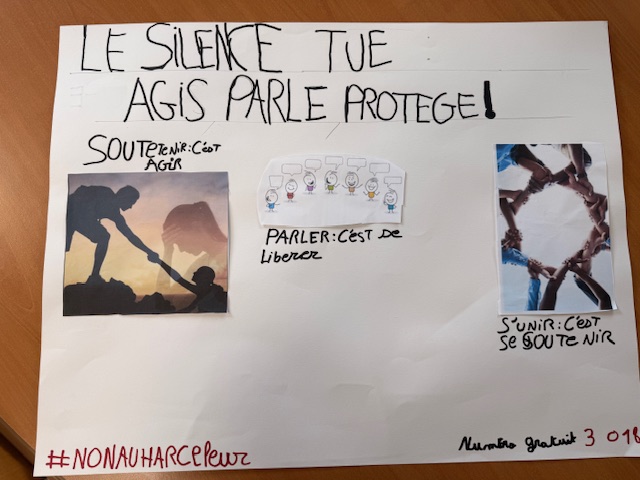 LE SILENCE TUE
AGIS PARLE PROTEGE!
SOUTETENIR: C'EST
AGIR
PARLER: C'EST DE
LIBERER
S'UNIR: C'EST
SE SOUTENIR
#NONAUHARCELEUR
Numéro gratuit 3 018